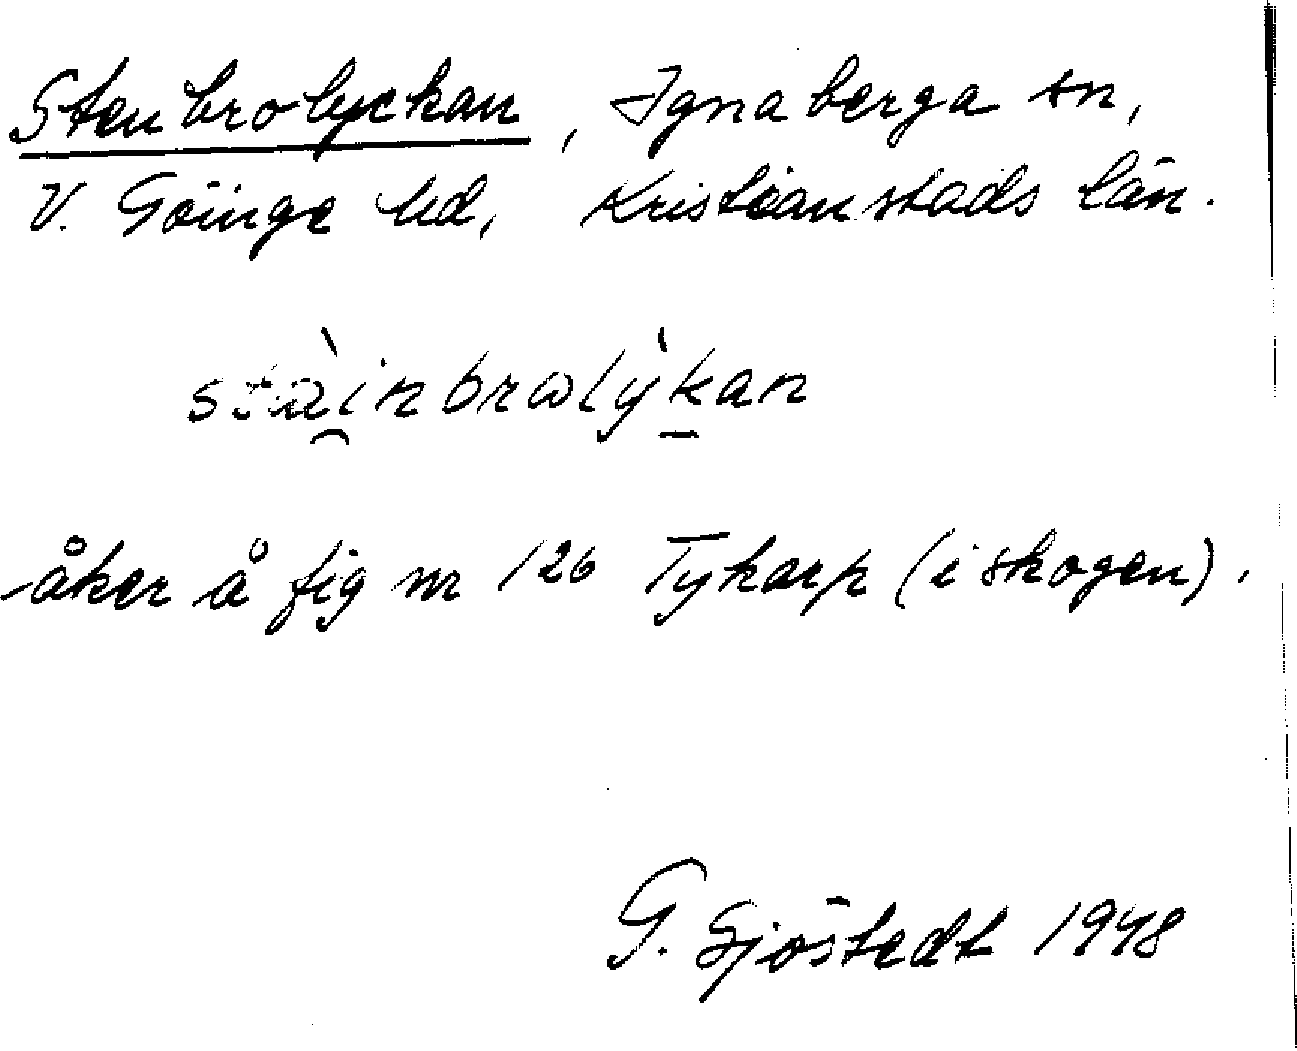 Stenbrolyckan, Ignaberga sn,
V. Göinge hd, Kristianstads län.
stài̯nbrωlỳk̲an
åker å fig nr 126 Tykarp (i skogen).
G. Sjöstedt 1948